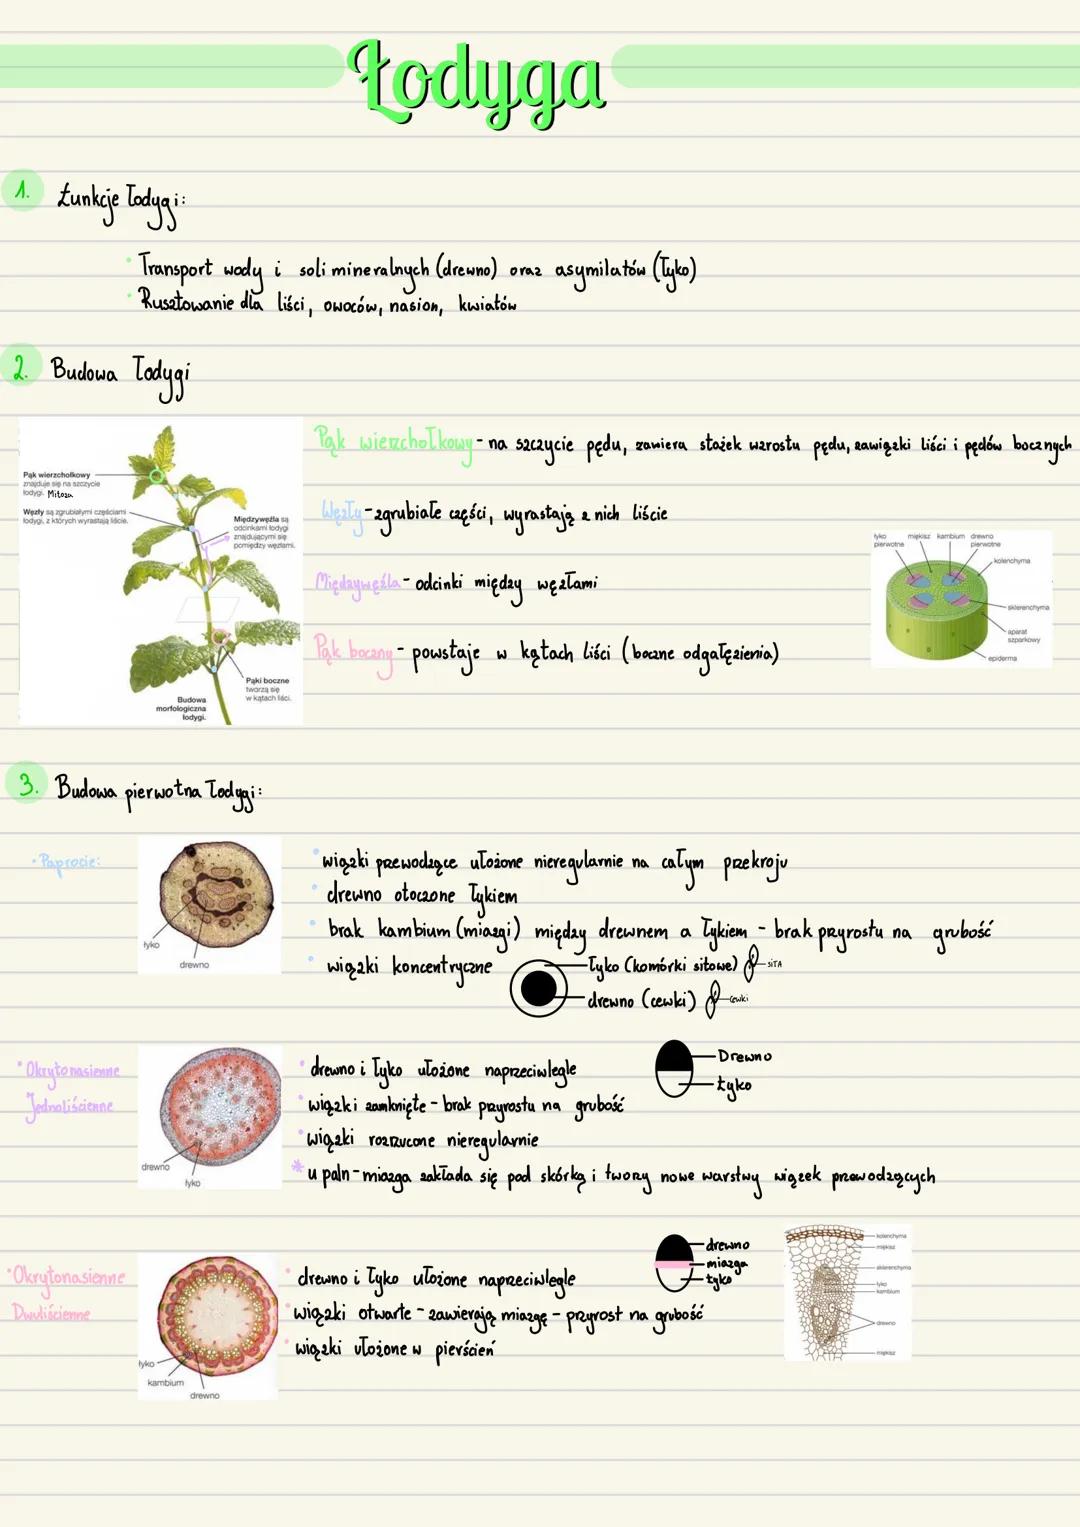 Łodyga
1. Funkcje łodygi:
• Transport wody i soli mineralnych (drewno) oraz asymilatów (łyko)
• Rusztowanie dla liści, owoców, nasion, kwiatów
2. Budowa łodygi
Pąk wierzchołkowy
znajduje się na szczycie
łodygi. Mitoza
Węzły są zgrubiałymi częściami
łodygi, z których wyrastają liście.
Międzywęźla są
odcinkami łodygi
znajdującymi się
pomiędzy węzłami.
Pąki boczne
tworzą się
w kątach liści.
Budowa
morfologiczna
łodygi.
Pąk wierzchołkowy - na szczycie pędu, zawiera stożek wzrostu pędu, zawiązki liści i pędów bocznych
Węzły - zgrubiałe części, wyrastają z nich liście
Międzywęźla - odcinki między węzłami
Pąk boczny - powstaje w kątach liści (boczne odgałęzienia)
łyko pierwotne
miękisz
kambium
drewno pierwotne
kolenchyma
sklerenchyma
aparat
szparkowy
epiderma
3. Budowa pierwotna łodygi:
• Paprocie:
łyko
drewno
• wiązki przewodzące ułożone nieregularnie na całym przekroju
• drewno otoczone łykiem
• brak kambium (miazgi) między drewnem a łykiem - brak przyrostu na grubość
• wiązki koncentryczne
łyko (komórki sitowe) SITA
drewno (cewki) cewki
• Okrytonasienne
Jednoliścienne
drewno
łyko
• drewno i łyko ułożone naprzeciwległe
• wiązki zamknięte - brak przyrostu na grubość
• wiązki rozrzucone nieregularnie
* u palm - miazga zakłada się pod skórką i tworzy nowe warstwy wiązek przewodzących
Drewno
Łyko
• Okrytonasienne
Dwuliścienne
łyko
kambium
drewno
• drewno i łyko ułożone naprzeciwległe
• wiązki otwarte - zawierają miazgę - przyrost na grubość
• wiązki ułożone w pierścień
drewno
miazga
łyko
kolenchyma
miękisz
sklerenchyma
łyko
kambium
drewno
miękisz